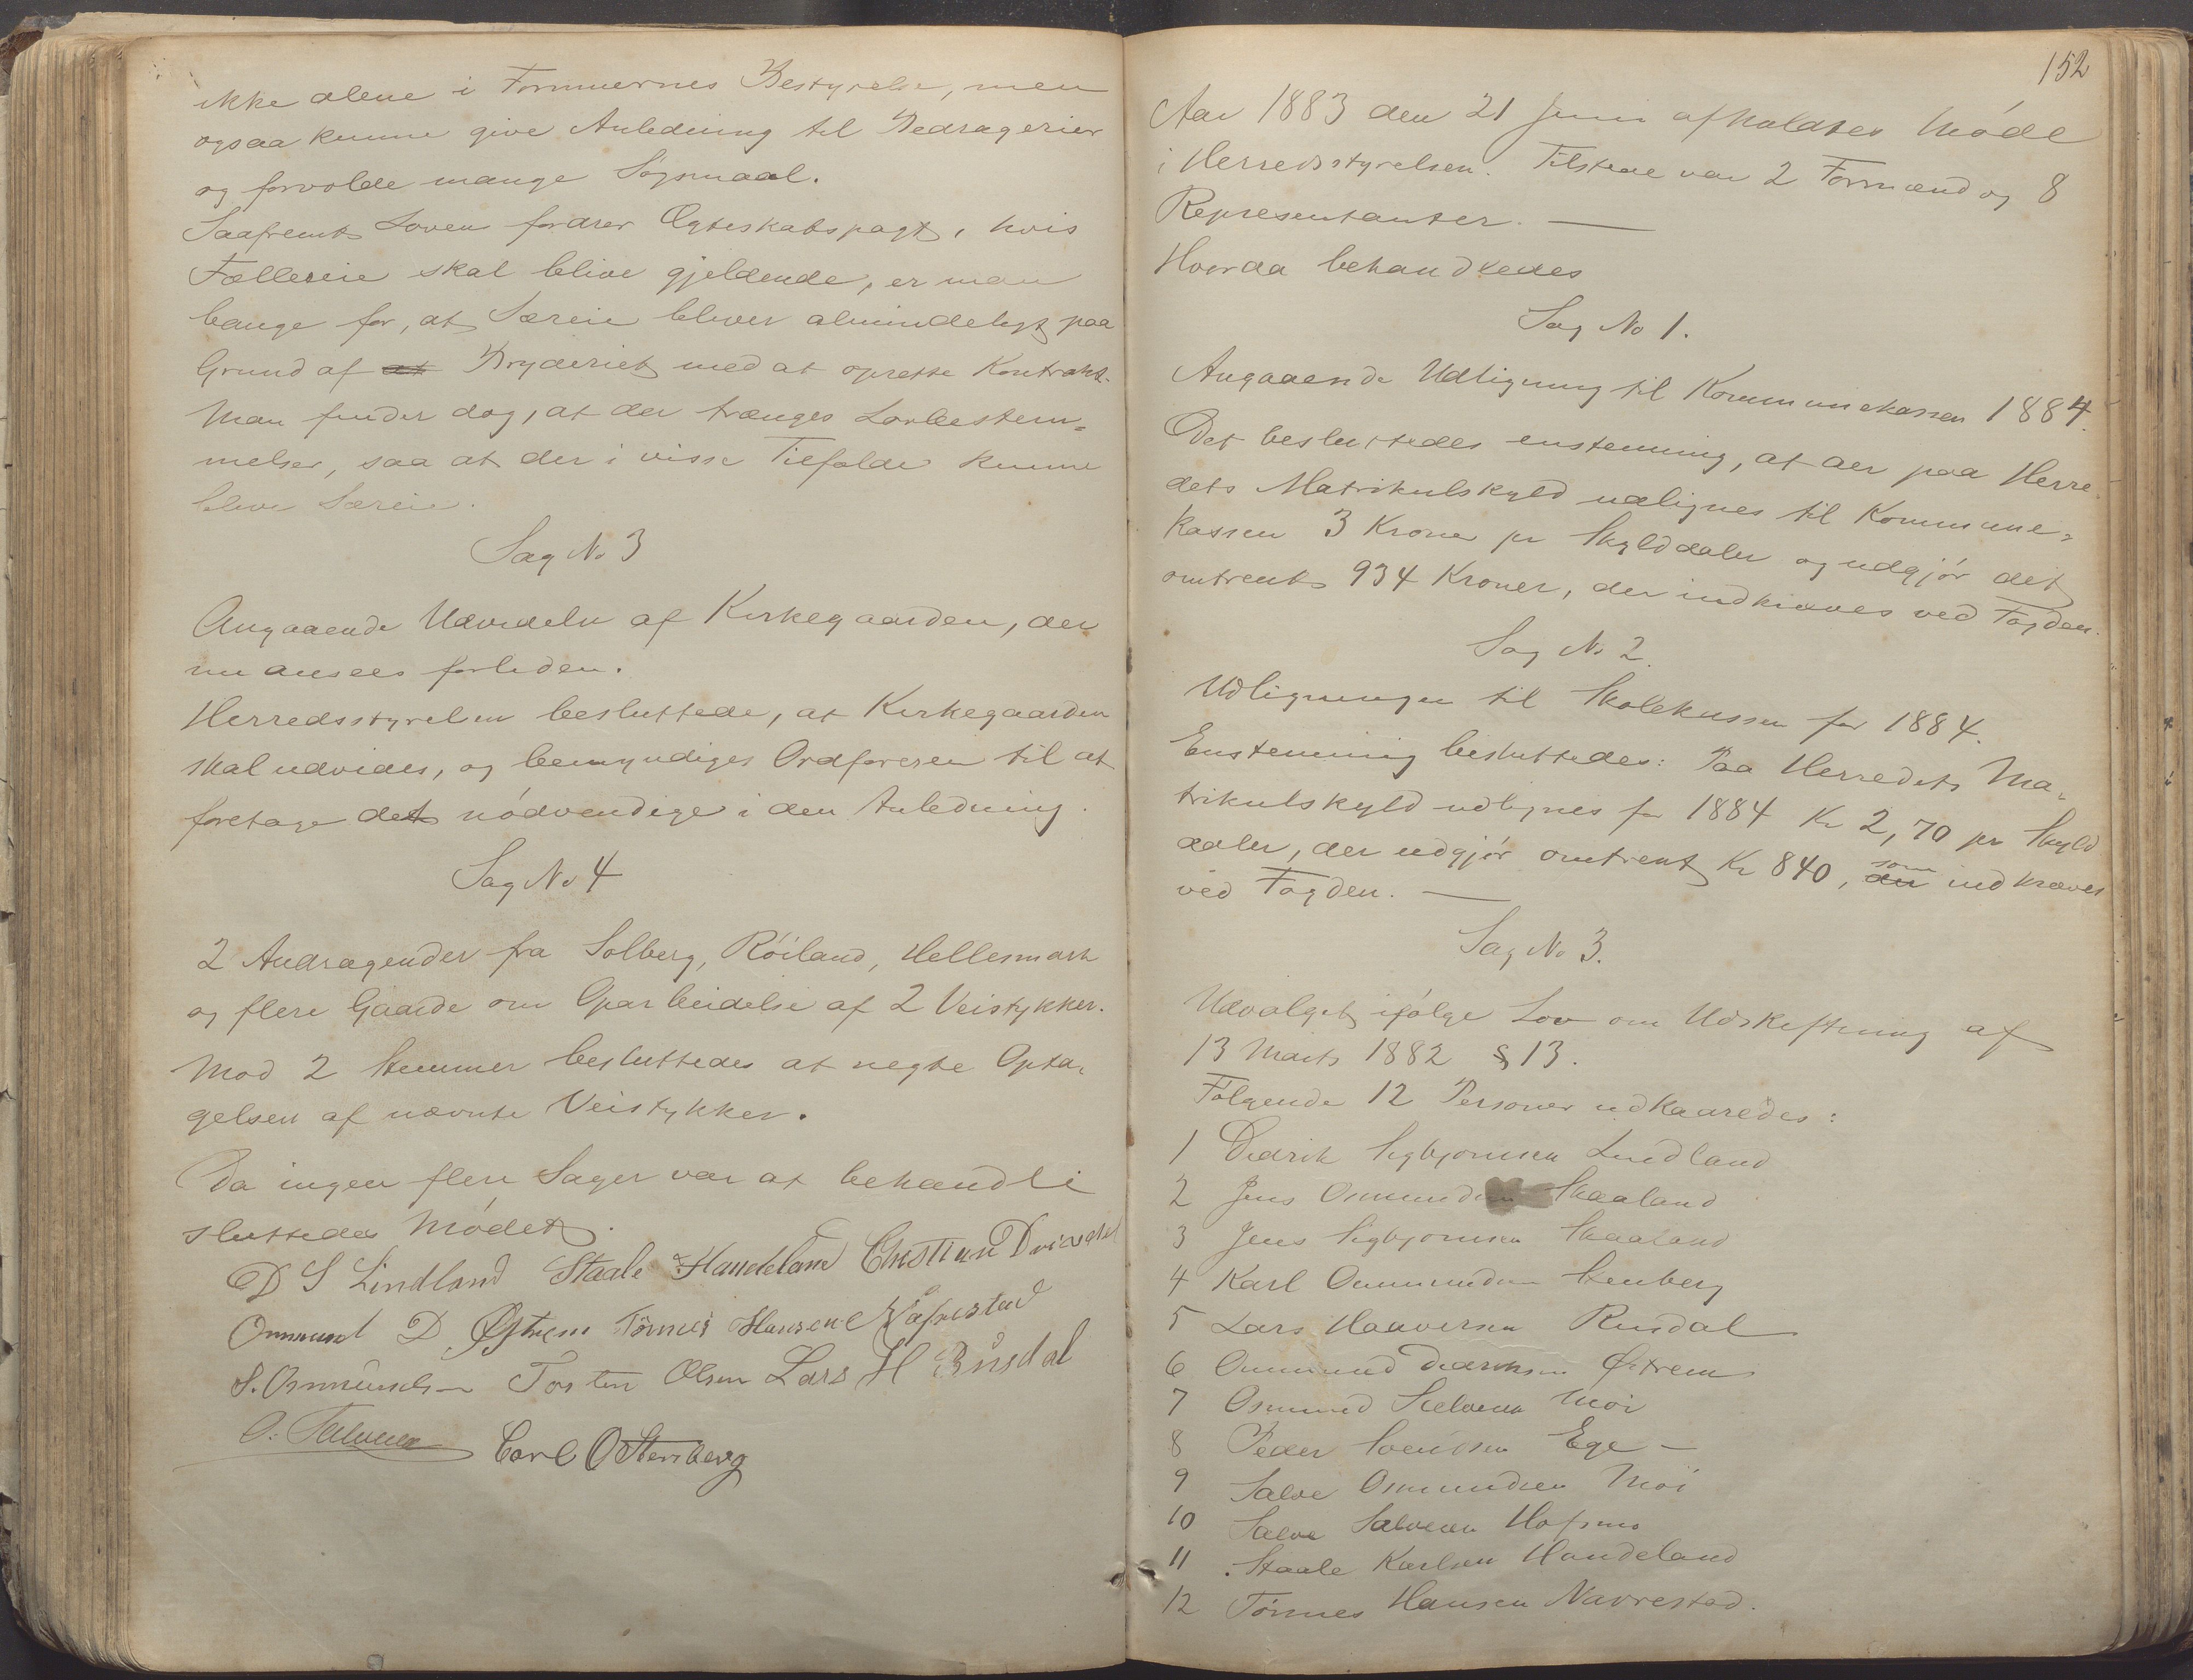 ikke alene i Formuernes Bestyrelse, men
ogsaa kunne give Anledning til Bedragerier
og forvolde mange Søgsmaal.
Saafremt Loven fordrer Ægteskabspagt, hvis
Fælleseie skal blive gjeldende, er man
bange for, at Særeie bliver almindeligt paa
Grund af at Bryderiet med at oprette Kontrakt.
Man finder dog, at der trænges Lovbestem=
melser, saa at der i visse Tilfælde kunne
blive Særeie.
Sag No 3
Angaaende Udvidelse af Kirkegaarden, der
nu ansees forliden.
Herredsstyrelsen besluttede, at Kirkegaarden
skal udvides, og bemyndiges Ordføreren til at
foretage det nødvendige i den Anledning.
Sag No 4
2 Andragender fra Solberg, Röiland, Hellesmark
og flere Gaarde om Oparbeidelse af 2 Veistykker.
Mod 2 Stemmer besluttedes at negte Opta=
gelsen af nævnte Veistykker.
Da ingen flere Sager var at behandle
sluttedes Mödet.
D S Lindland Staale Handeland Christian
Ommund D. Østrem Tönnes Hansen Nafrestad
S. Osmundsen Torsten Olsen Lars H Rusdal
O. Salvesen Carl O Stenberg
152
Aar 1883 den 21 Juni afholdtes Möde
i Herredsstyrelsen. Tilstede var 2 Formænd og 8
Representanter. —
Hvorda behandledes
Sag No 1.
Angaaende Udligning til Kommunekassen 1884.
Det besluttedes enstemmig, at der paa Herre
dets Matrikulskyld udlignes til Kommune=
kassen 3 Kroner pr Skylddaler og udgjör det
omtrent 934 Kroner, der indkræves ved Fogden.
Sag No 2.
Udligningen til Skolekassen for 1884.
Enstemmig besluttedes: Paa Herredets Ma=
trikulskyld udlignes for 1884 Kr 2,70 pr Skyld
daler, der udgjör omtrent Kr 840, der som indkræves
ved Fogden. —
Sag No 3.
Udvalget ifölge Lov om Udskiftning af
13 Marts 1882 § 13.
Fölgende 12 Personer udkaaredes:
1 Didrik Sigbjornsen Lindland
2 Jens Osmundsen Skaaland
3 Jens Sigbjornsen Skaaland
4 Karl Ommundsen Stenberg
5 Lars Haaversen Rusdal
6 Ommund Didriksen Østrem
7 Osmund Salvesen Moi
8 Peder Svendsen Ege —
9 Salve Osmundsen Moi
10 Salve Salvesen Hofsmo
11 Staale Karlsen Handeland
12 Tönnes Hansen Navrestad.